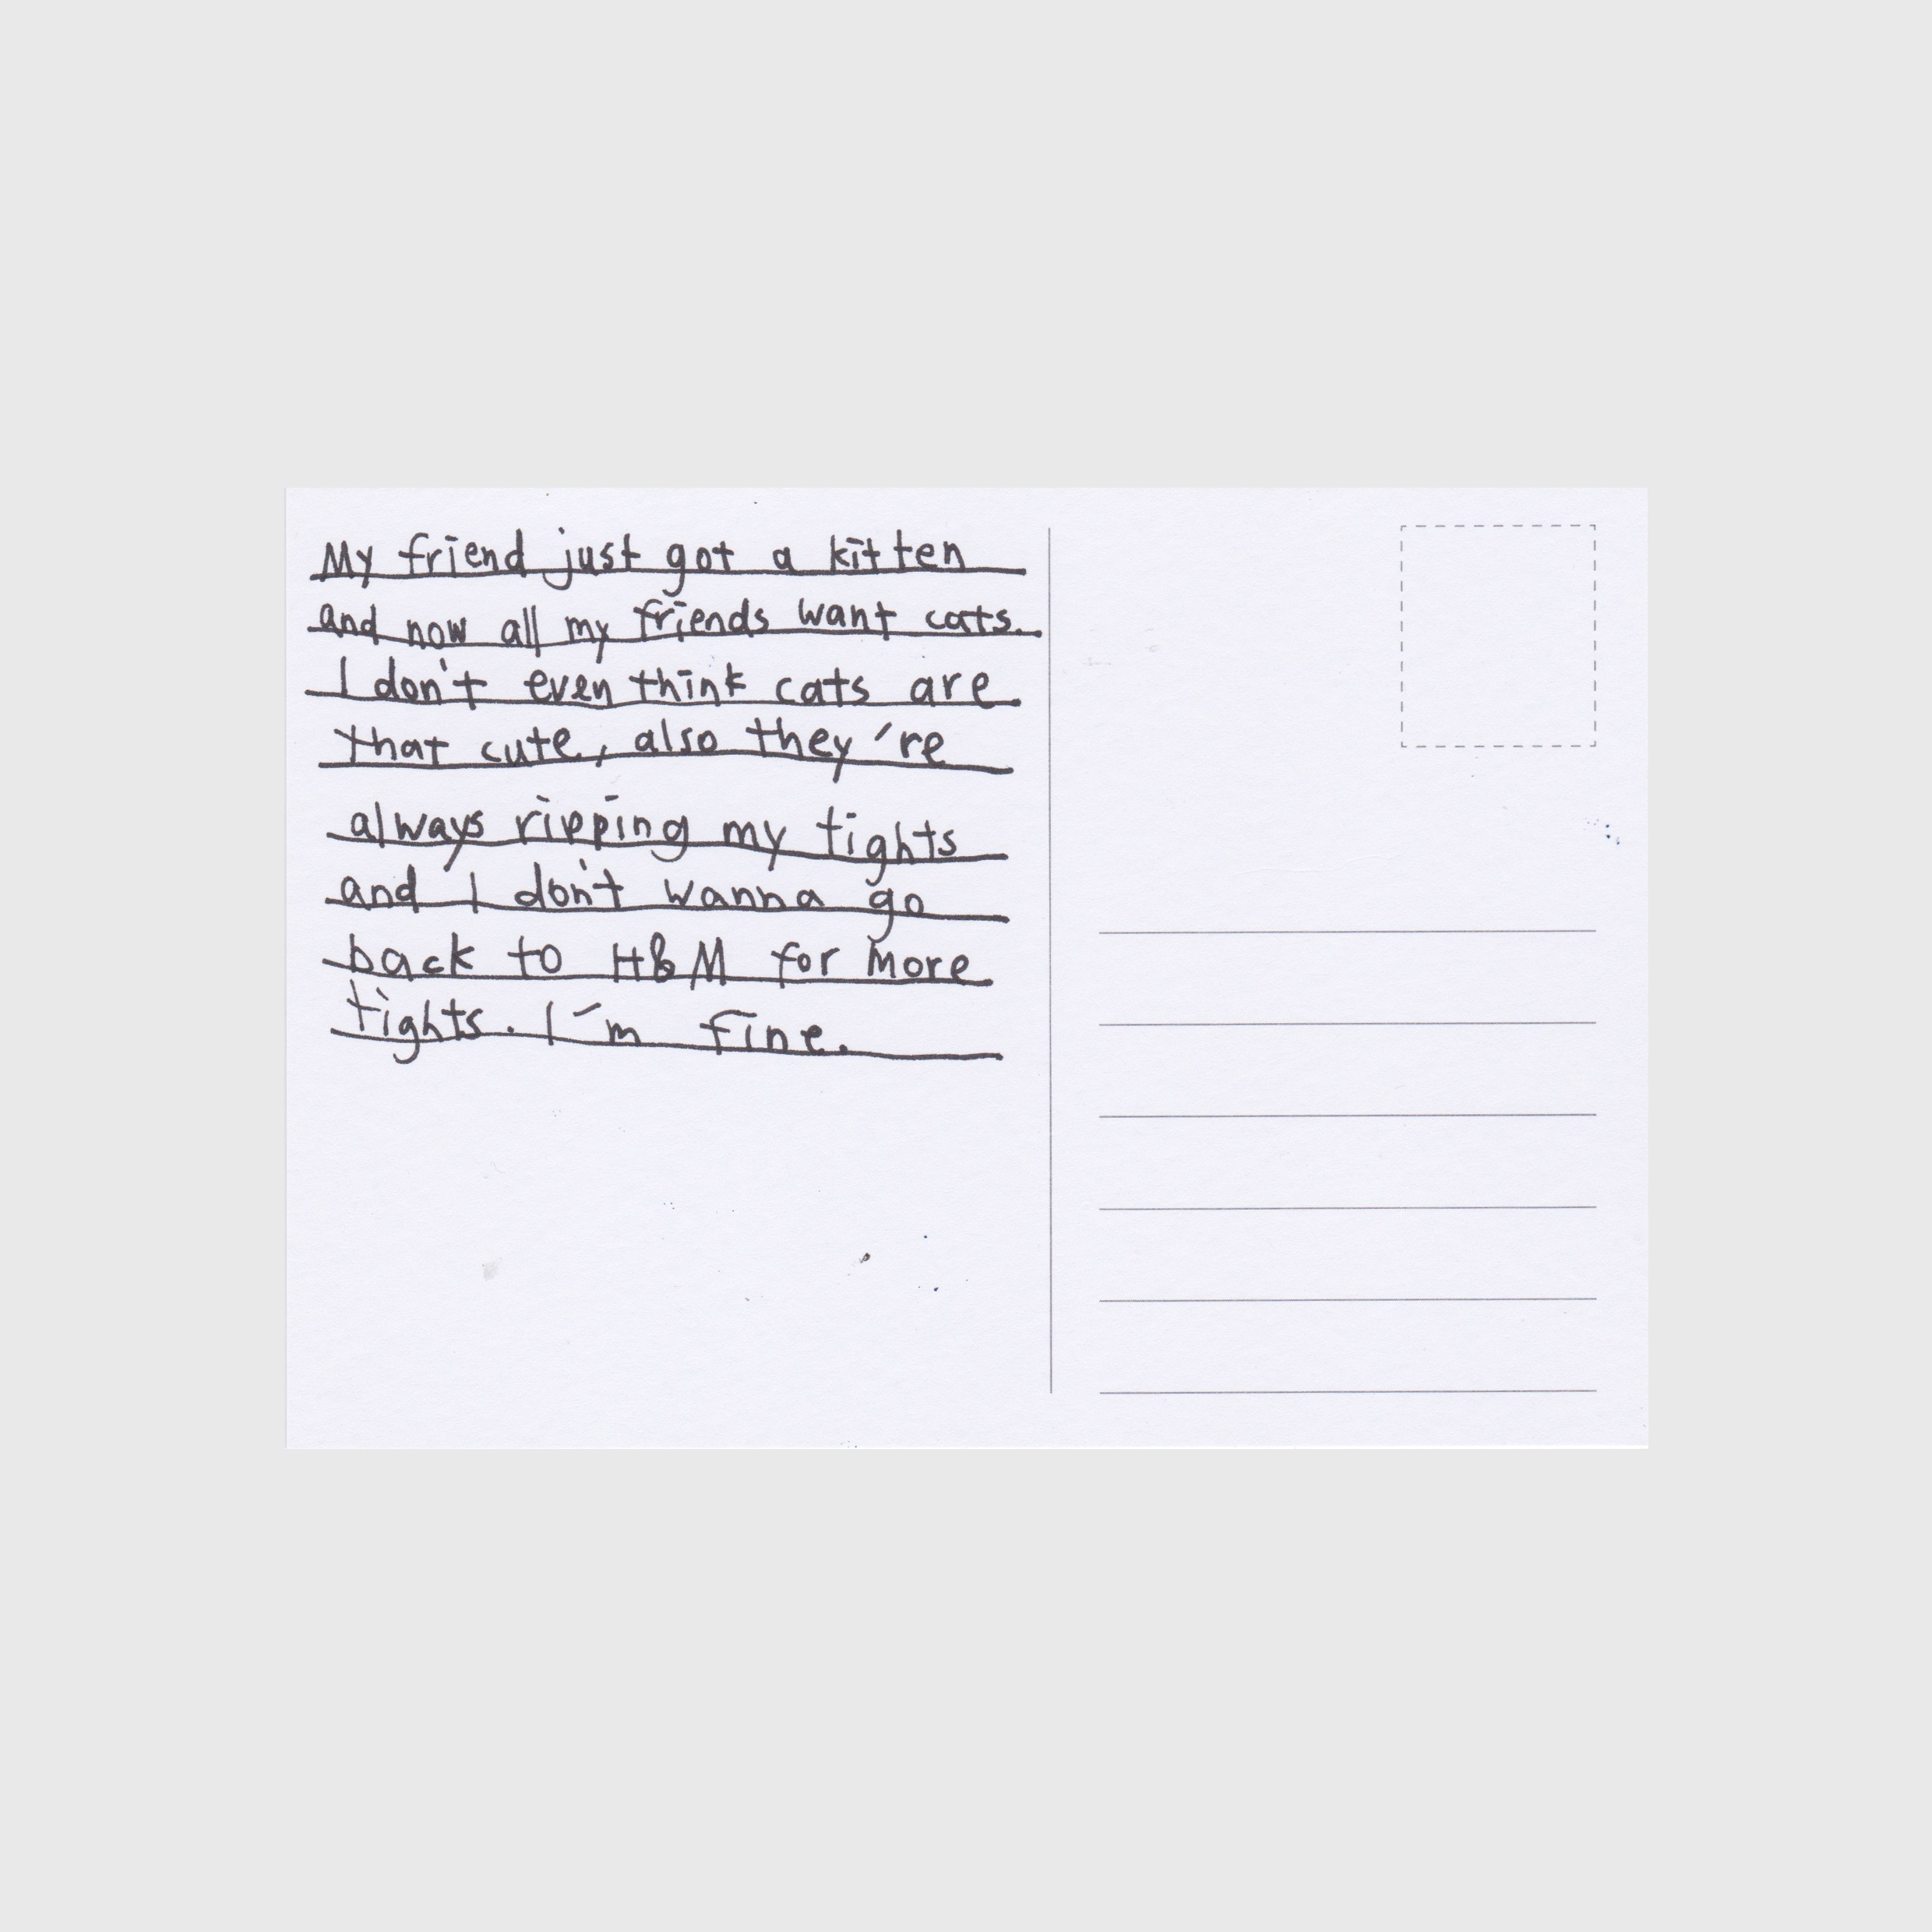 My friend just got a kitten
and now all my friends want cats.
I don't even think cats are
that cute, also they're
always ripping my tights
and I don't wanna go
back to H&M for more
tights. I'm fine.